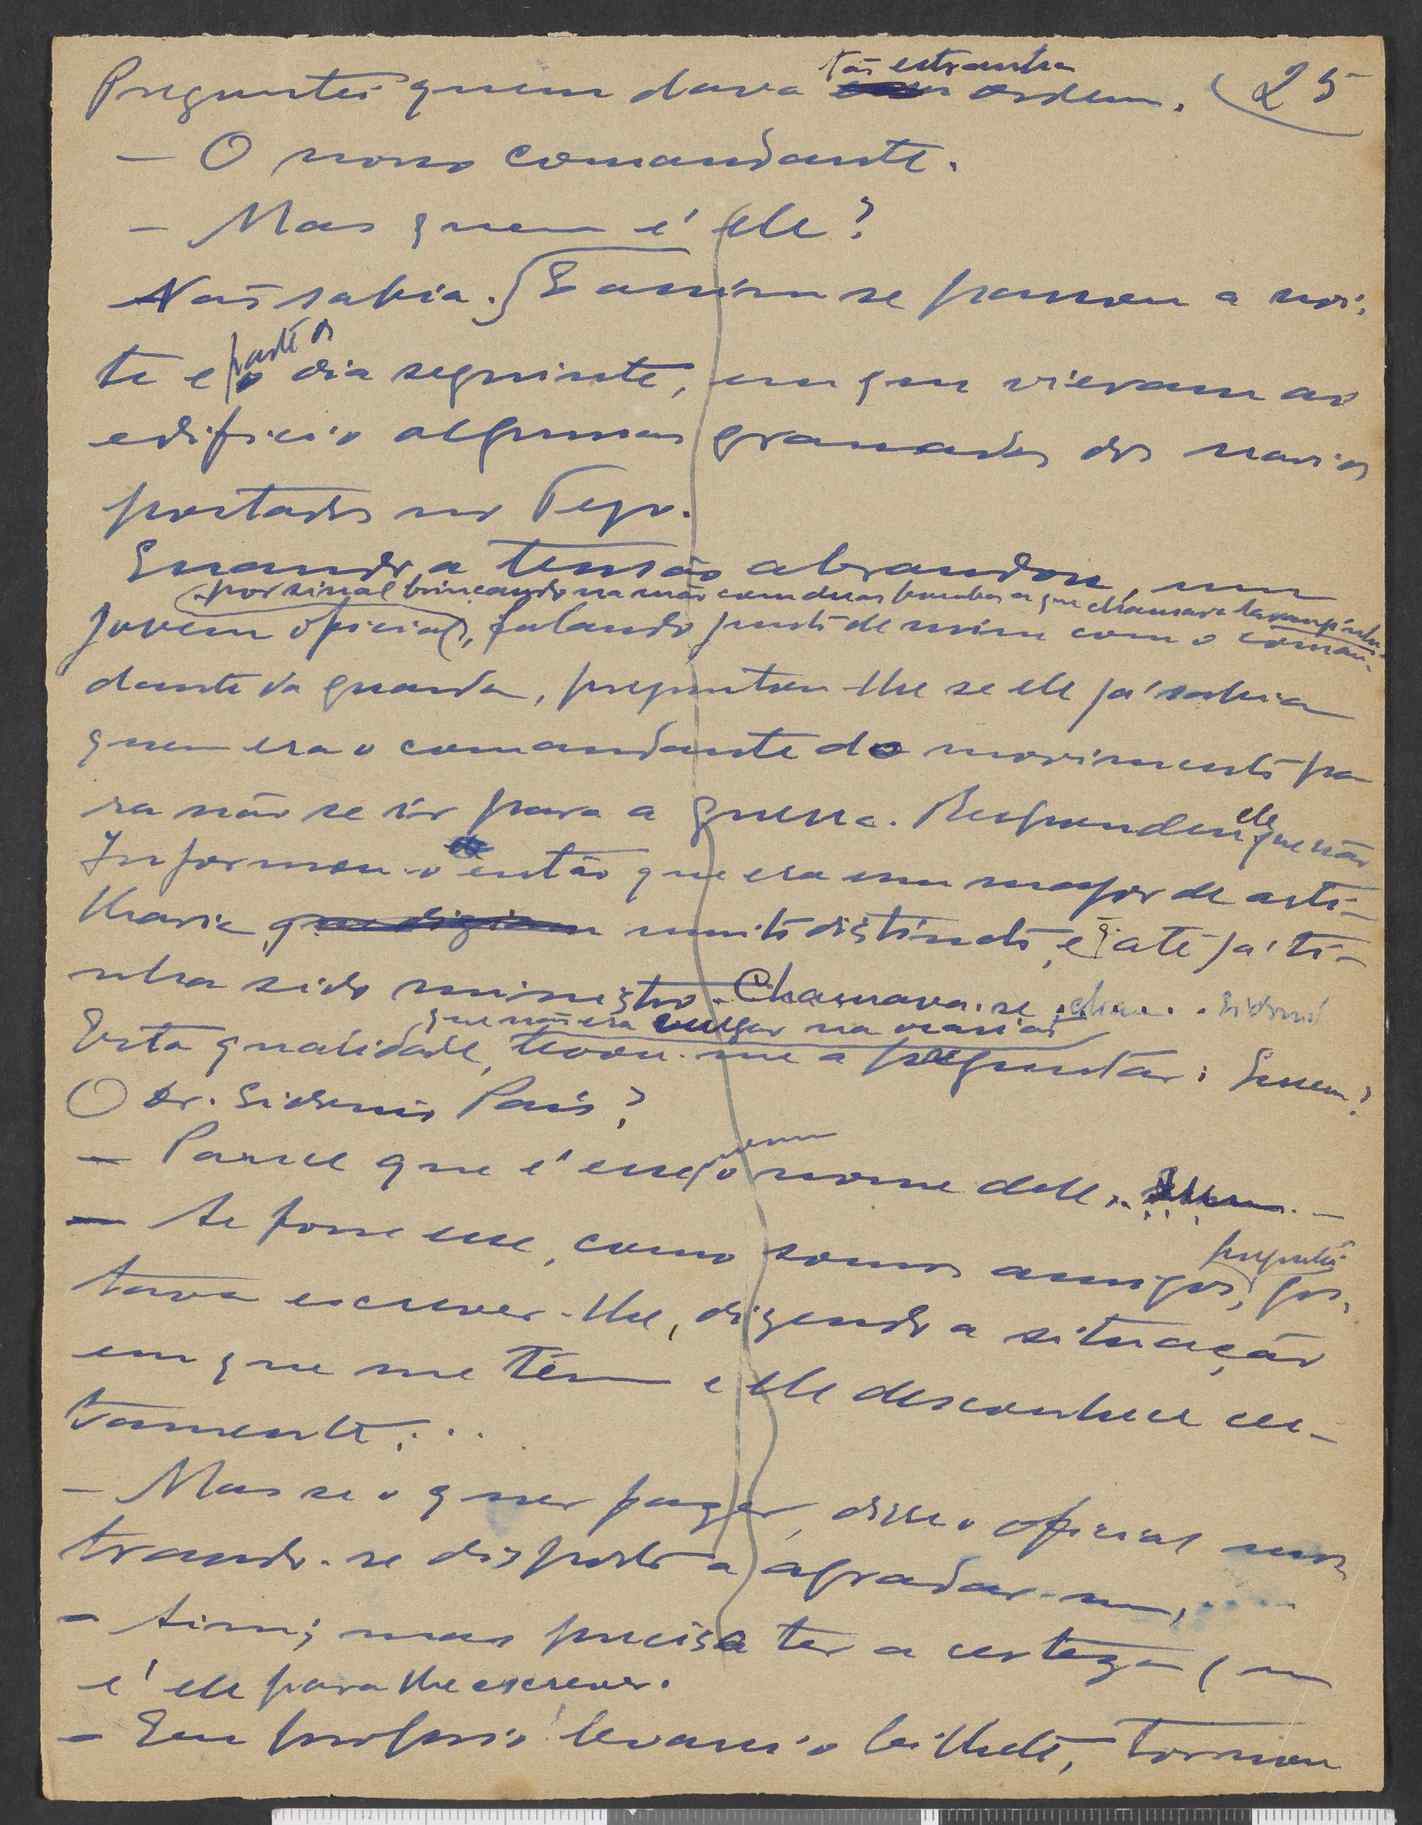 25
tão estranha
Preguntei quem dava ordem.
— O nosso comandante.
— Mas quem é ele?
Não sabia. E assim se passou a noi-
parte do
te e o dia seguinte, em que vieram ao
edificio algumas granadas dos navios
postados no Tejo.
Quando a tensão abrandou, um
por sinal brincando na mão com duas bombas a que chamava
jovem oficial, falando junto de mim com o coman-
dante da guarda, preguntou-lhe se ele já sabia
quem era o comandante do movimento pa-
ra não se ir para a guerra. Respondeu ele que não
Informou-o então que era um major de arti-
lharia que diziam muito distincto, e até já ti-
nha sido ministro. Chamava-se Sidonio
que não era vulgar na ocasião
Esta qualidade, levou-me a preguntar: Quem?
O Dr. Sidonio Pais?
— Parece que é esse o nome dele...
— Se fosse esse, como somos amigos, gos-
tava escrever-lhe, dizendo a situação
em que me têm e ele desconhece cer-
tamente...
— Mas se o quer fazer, disse o oficial mos-
trando-se disposto a agradar-me,
— Sim; mas precisa ter a certeza que
é ele para lhe escrever.
— Eu proprio levarei o bilhete, tornou